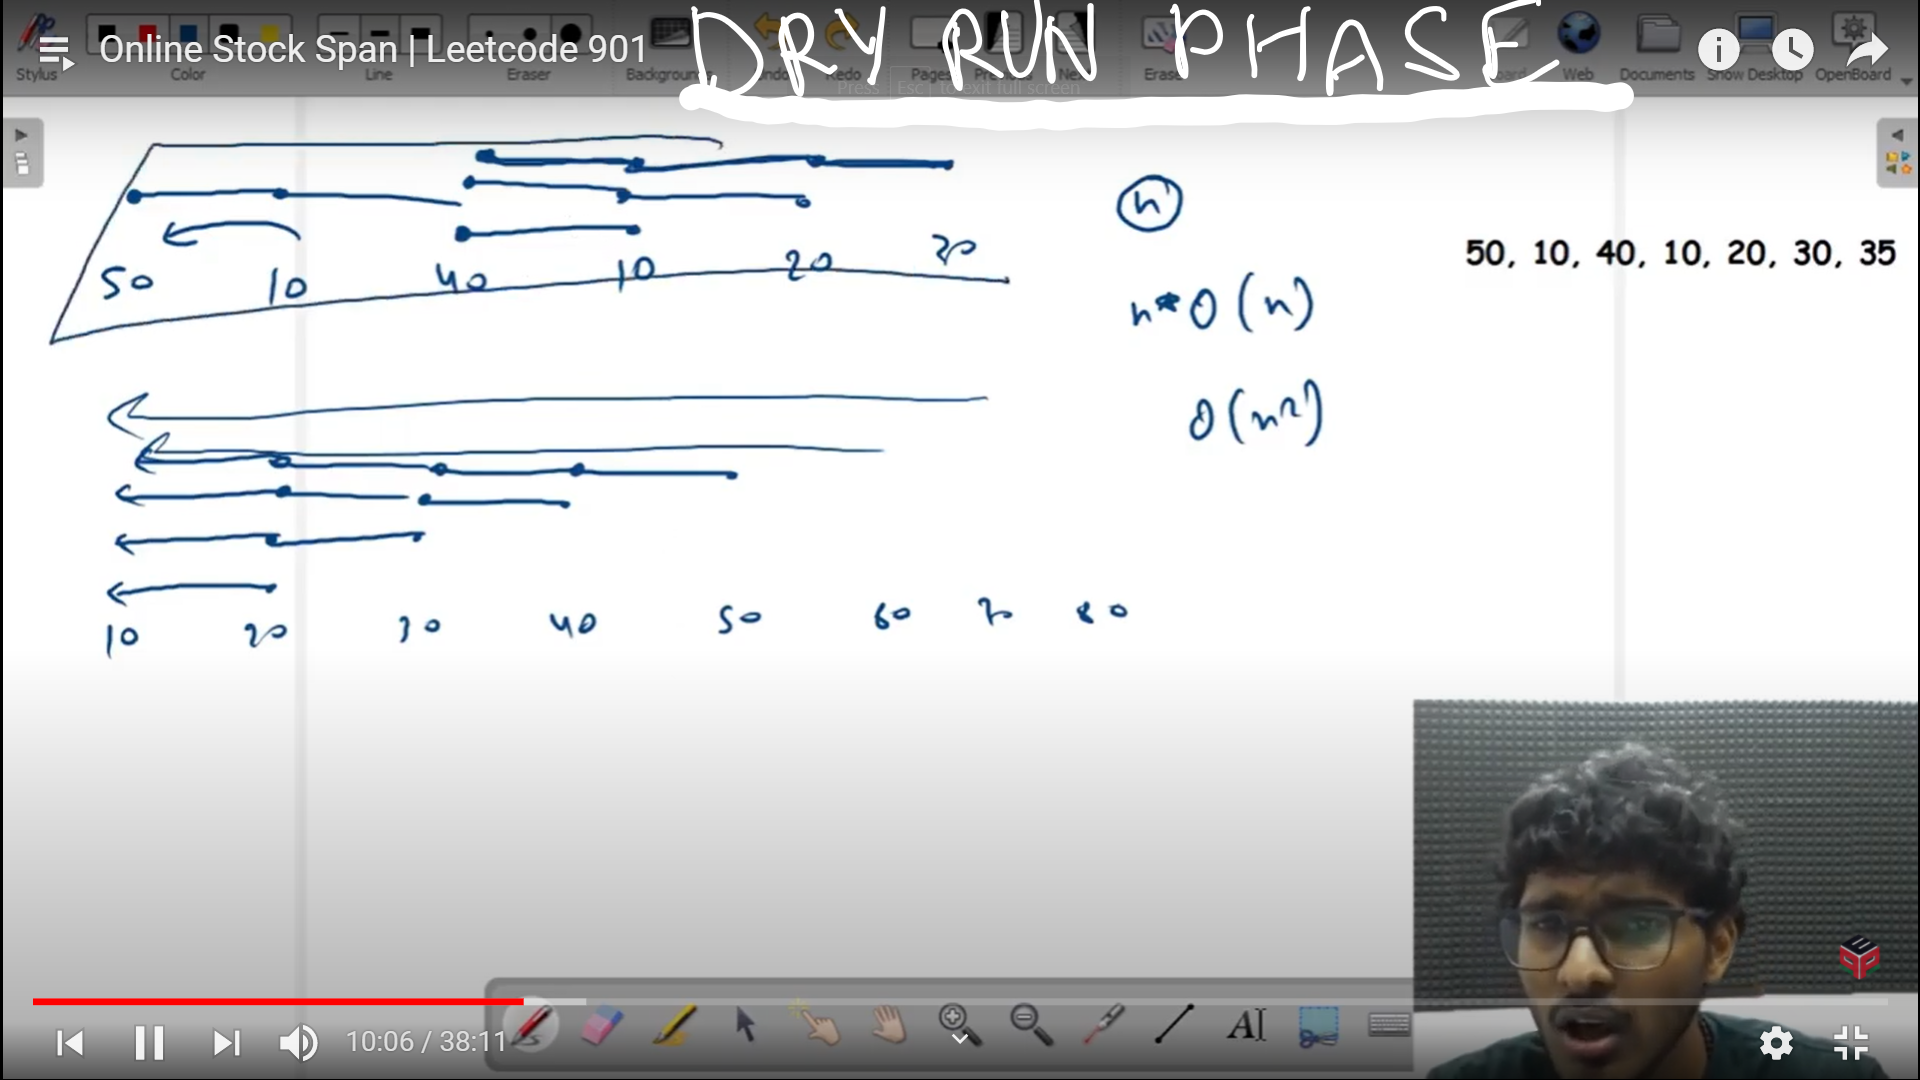 Online Stock Span | Leetcode 901
DRY RUN PHASE
Stylus Color Line Eraser Backgrounds Undo Redo Pages Previous Next Erase Board Web Documents Show Desktop OpenBoard
Press Esc to exit full screen
n
50, 10, 40, 10, 20, 30, 35
50 10 40 10 20 30
n * O (n)
O (n²)
10 20 30 40 50 60 70 80
10:06 / 38:11
AI